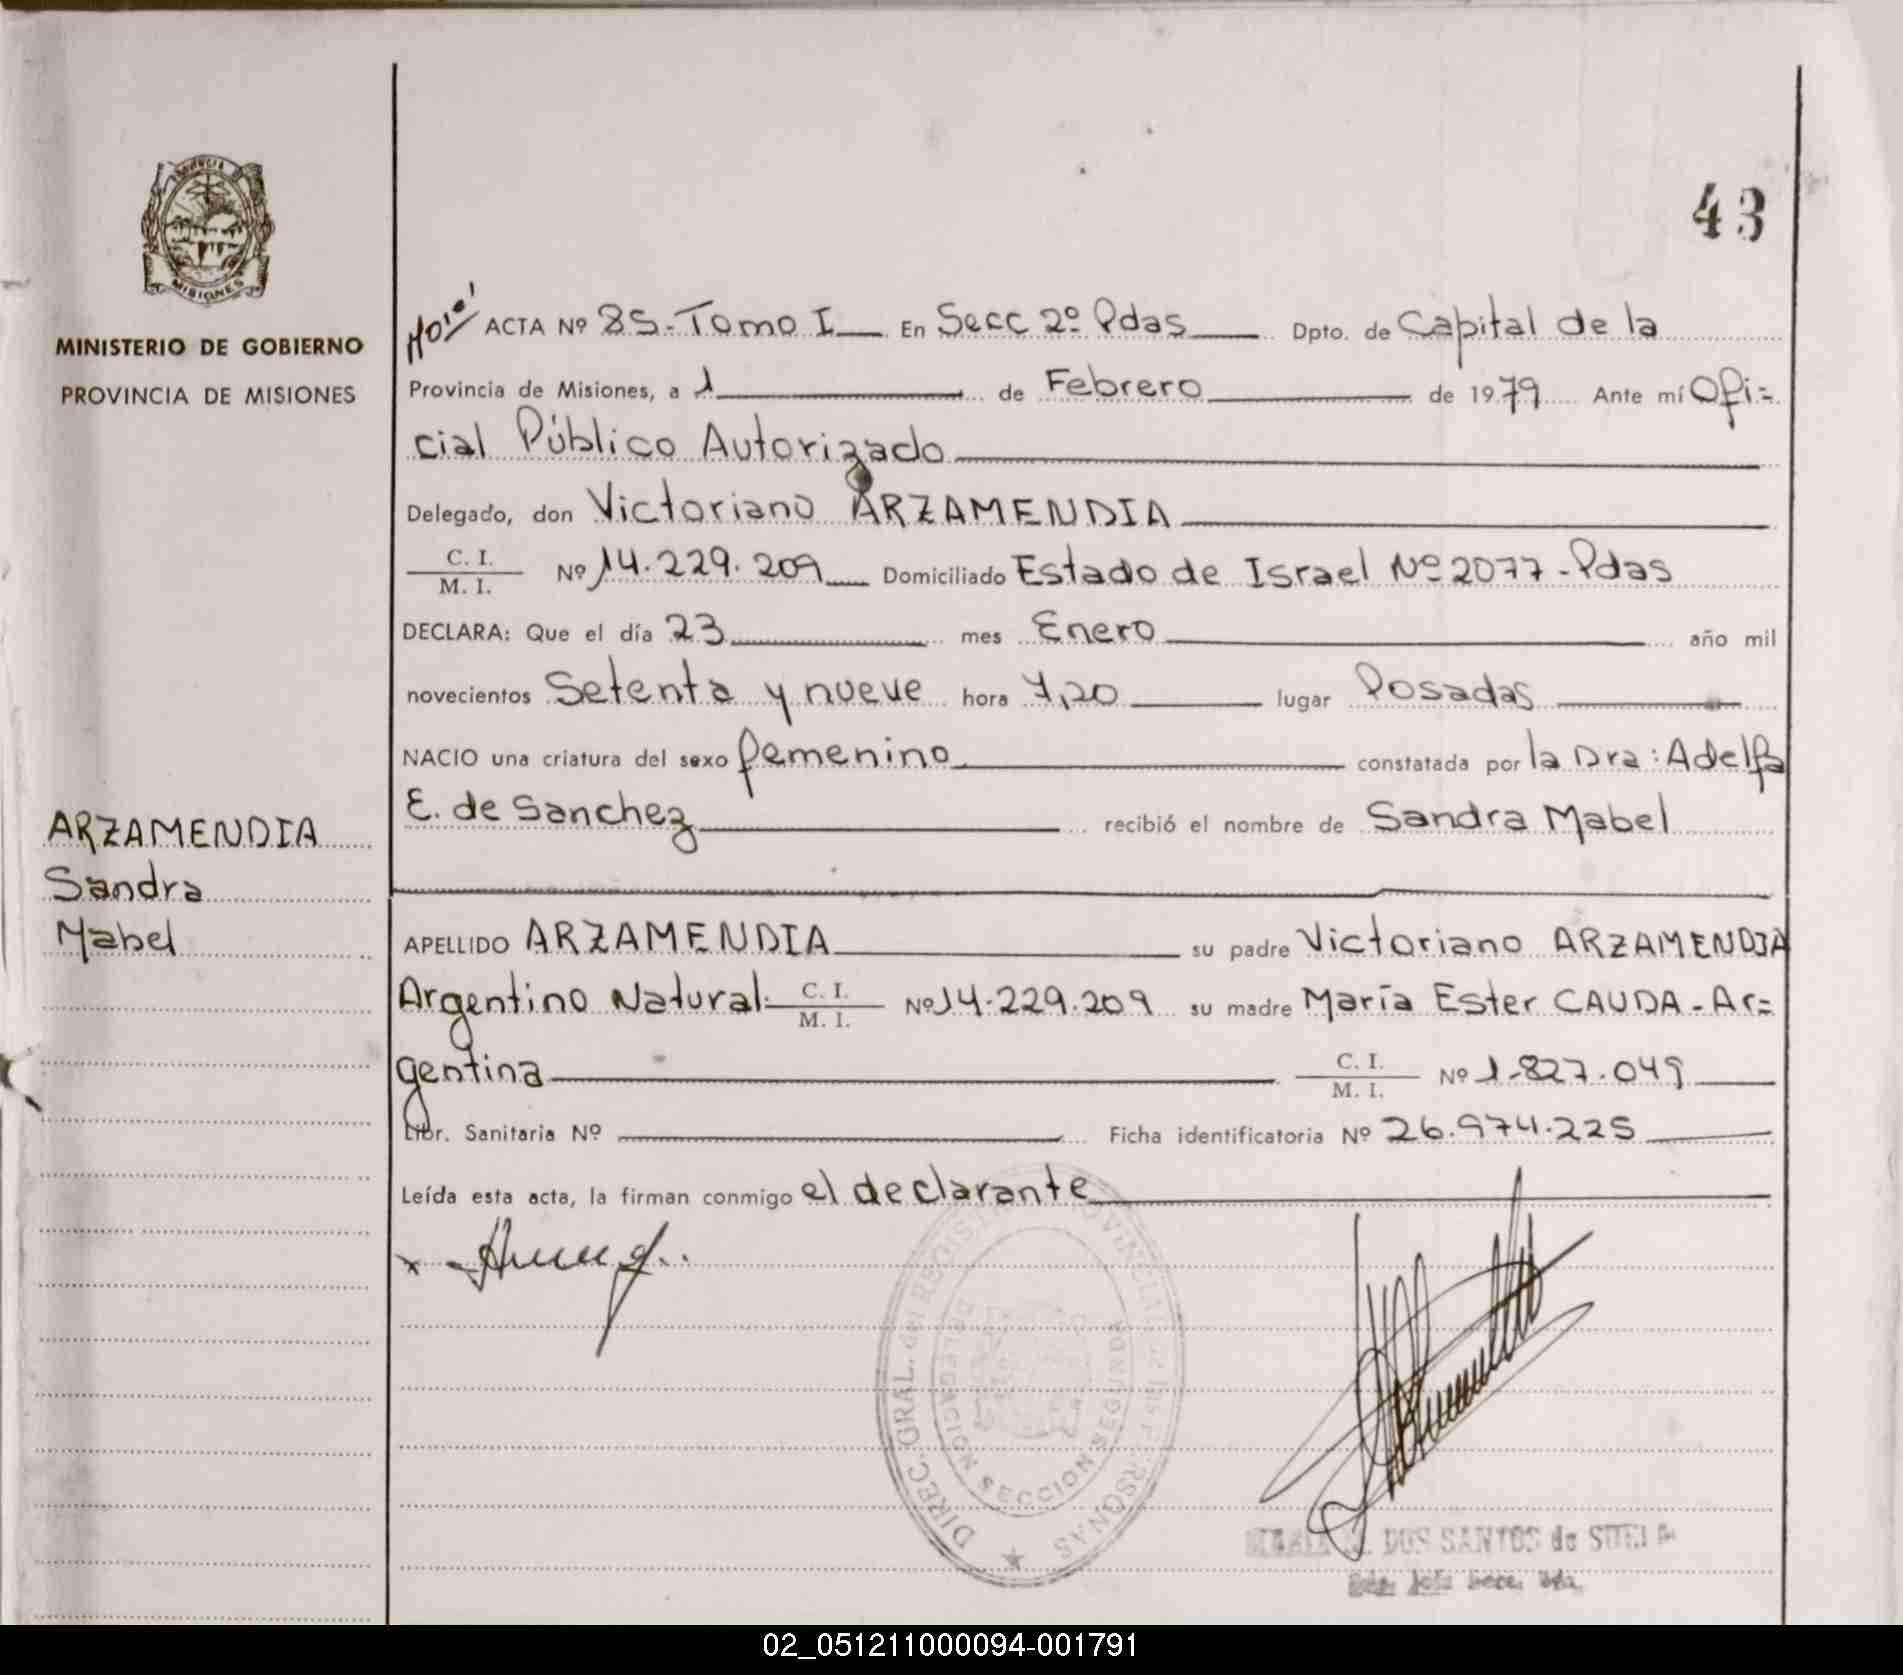 43
MINISTERIO DE GOBIERNO
PROVINCIA DE MISIONES
ACTA Nº 85-Tomo I En Secc 2º Pdas Dpto. de Capital de la
Provincia de Misiones, a 1 de Febrero de 1979 Ante mí Ofi=
cial Público Autorizado
Delegado, don Victoriano ARZAMENDIA
C. I.
M. I. Nº 14.229.209 Domiciliado Estado de Israel Nº 2077-Pdas
DECLARA: Que el día 23 mes Enero año mil
novecientos Setenta y nueve hora 7,20 lugar Posadas
NACIO una criatura del sexo femenino constatada por la Dra: Adelfa
E. de Sanchez recibió el nombre de Sandra Mabel
ARZAMENDIA
Sandra
Mabel
APELLIDO ARZAMENDIA su padre Victoriano ARZAMENDIA
Argentino Natural. C. I.
M. I. Nº 14.229.209 su madre María Ester CAUDA-Ar=
gentina C. I.
M. I. Nº 1.827.049
Libr. Sanitaria Nº Ficha identificatoria Nº 26.974.225
Leída esta acta, la firman conmigo el declarante
DIREC. GRAL. del REGISTRO PROVINCIAL de las PERSONAS
DELEGACION SECCION SEGUNDA
DOS SANTOS de
02_051211000094-001791